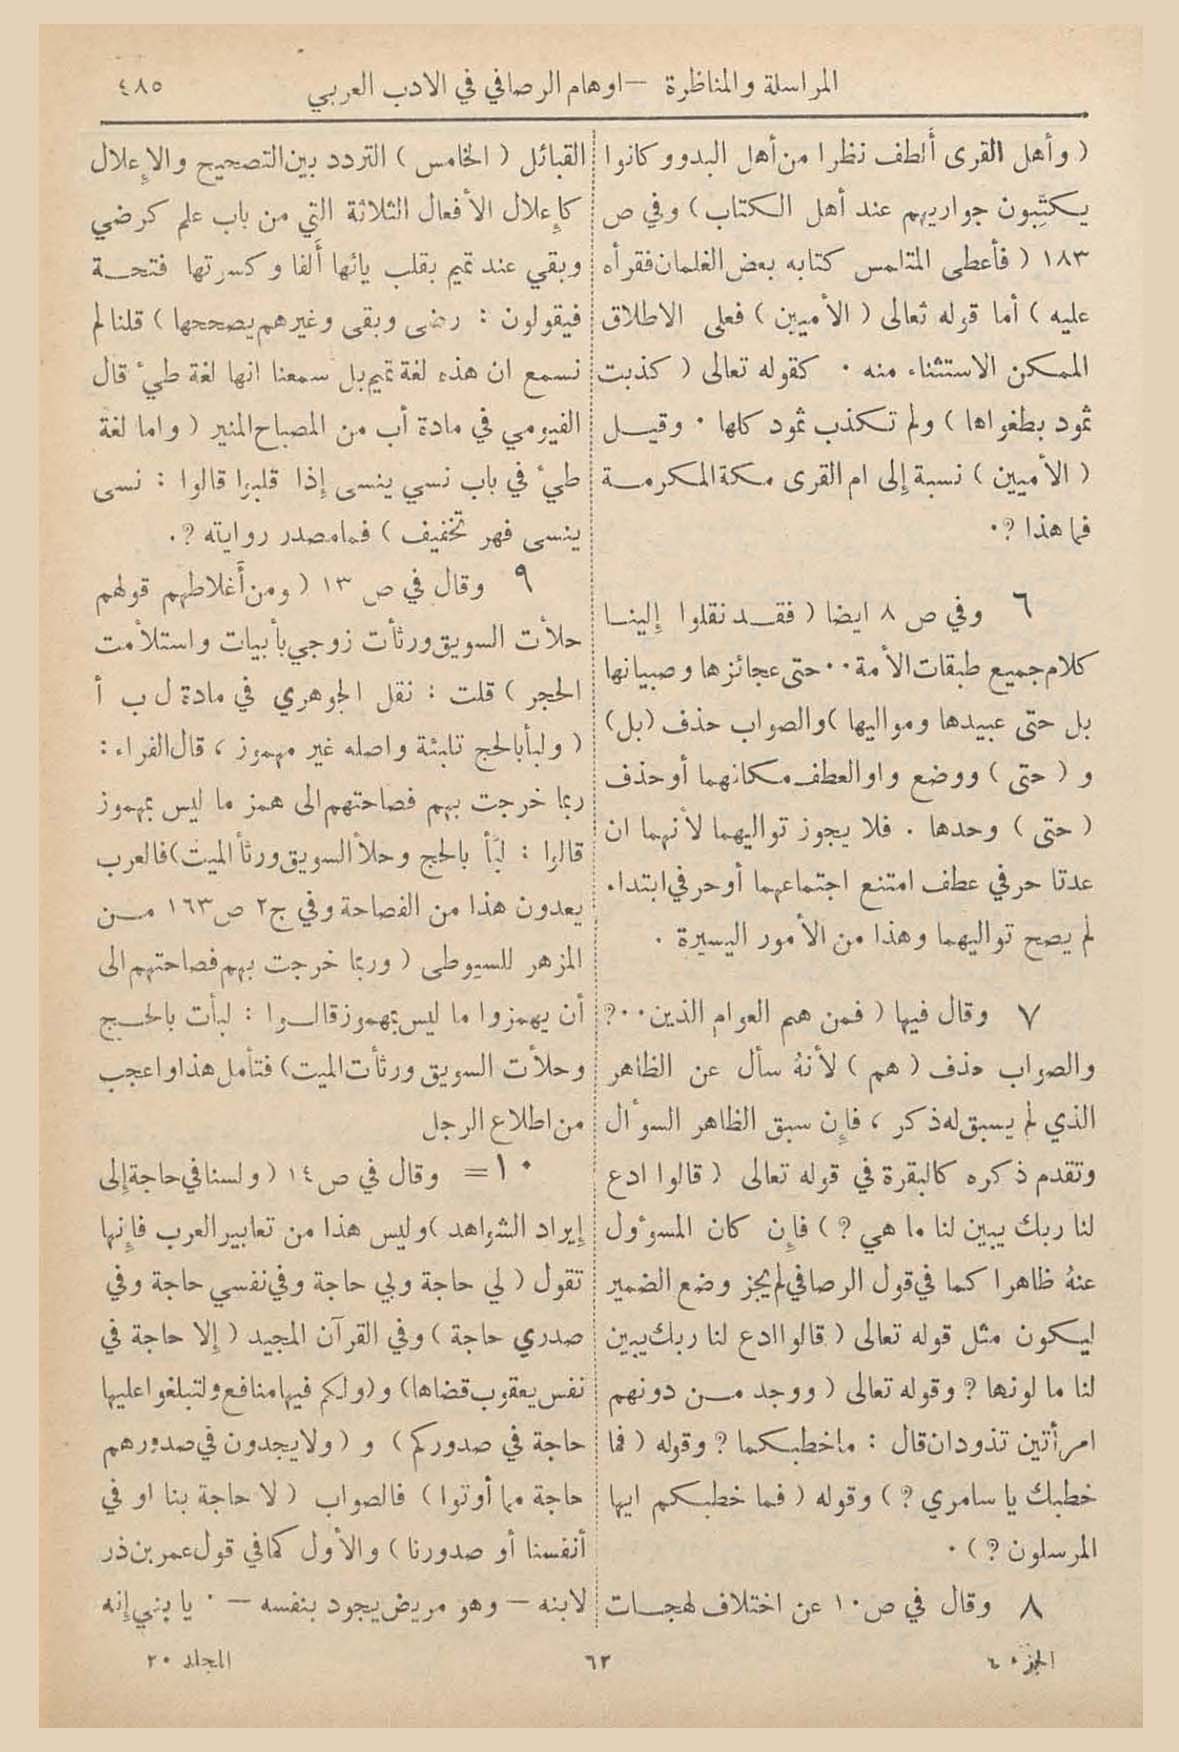 المراسلة والمناظرة — اوهام الرصافي في الادب العربي
٤٨٥
( وأهل القرى ألطف نظرا من أهل البدو وكانوا
يكتَّبون جواريهم عند أهل الكتاب ) وفي ص
١٨٣ ( فأعطى المتلمس كتابه بعض الغلمان فقرأه
عليه ) أما قوله تعالى ( الأميين ) فعلى الاطلاق
الممكن الاستثناء منه · كقوله تعالى ( كذبت
ثمود بطغواها ) ولم تكذب ثمود كلها · وقيل
( الأميين ) نسبة إلى ام القرى مكة المكرمة
فما هذا ? ·
٦ وفي ص ٨ ايضا ( فقد نقلوا إلينا
كلام جميع طبقات الأمة ·· حتى عجائزها وصبيانها
بل حتى عبيدها ومواليها ) والصواب حذف ( بل )
و ( حتى ) ووضع واو العطف مكانهما أو حذف
( حتى ) وحدها . فلا يجوز تواليهما لأنهما ان
عدتا حرفي عطف امتنع اجتماعهما أو حرفي ابتداء
لم يصح تواليهما وهذا من الأمور اليسيرة ·
٧ وقال فيها ( فمن هم العوام الذين ··?
والصواب حذف ( هم ) لأنهُ سأل عن الظاهر
الذي لم يسبق له ذكر ، فإن سبق الظاهر السوأل
وتقدم ذكره كالبقرة في قوله تعالى ( قالوا ادع
لنا ربك يبين لنا ما هي ? ) فإن كان المسؤول
عنهُ ظاهرا كما في قول الرصافي لم يجز وضع الضمير
ليكون مثل قوله تعالى ( قالوا ادع لنا ربك يبين
لنا ما لونها ? وقوله تعالى ( ووجد من دونهم
امرأتين تذودان قال : ما خطبكما ? وقوله ( فما
خطبك يا سامري ? ) وقوله ( فما خطبكم ايها
المرسلون ? ) ·
٨ وقال في ص ١٠ عن اختلاف لهجات
القبائل ( الخامس ) التردد بين التصحيح والإعلال
كإعلال الأفعال الثلاثة التي من باب علم كرضي
وبقي عند تميم بقلب يائها أَلفا وكسرتها فتحة
فيقولون : رضى وبقى وغيرهم يصححها ) قلنا لم
نسمع ان هذه لغة تميم بل سمعنا انها لغة طيء قال
الفيومي في مادة أب من المصباح المنير ( واما لغة
طيء في باب نسي ينسى إذا قلبوا قالوا : نسى
ينسى فهر تخفيف ) فما مصدر روايته ? .
٩ وقال في ص ١٣ ( ومن أَغلاطهم قولهم
حلأت السويق ورثأت زوجي بأبيات واستلأمت
الحجر ) قلت : نقل الجوهري في مادة ل ب أ
( ولبأ بالحج تلبئة واصله غير مهموز ، قال الفراء :
ربما خرجت بهم فصاحتهم الى همز ما ليس بمهموز
قالوا : لبَّأ بالحج وحلأ السويق ورثأ الميت ) فالعرب
يعدون هذا من الفصاحة وفي ج ٢ ص ١٦٣ من
المزهر للسيوطي ( وربما خرجت بهم فصاحتهم الى
أن يهمزوا ما ليس بمهموز قالوا : لبأت بالحج
وحلأت السويق ورثأت الميت ) فتأمل هذا واعجب
من اطلاع الرجل
١٠ = وقال في ص ١٤ ( ولسنا في حاجة إلى
إيراد الشواهد ) وليس هذا من تعابير العرب فإنها
تقول ( لي حاجة وبي حاجة وفي نفسي حاجة وفي
صدري حاجة ) وفي القرآن المجيد ( إلا حاجة في
نفس يعقوب قضاها ) و ( ولكم فيها منافع ولتبلغوا عليها
حاجة في صدوركم ) و ( ولا يجدون في صدورهم
حاجة مما أوتوا ) فالصواب ( لا حاجة بنا او في
أنفسنا أو صدورنا ) والأول كما في قول عمر بن ذر
لابنه — وهو مريض يجود بنفسه — · يا بني إنه
الجزء ٤
٦٢
المجلد ٢٠